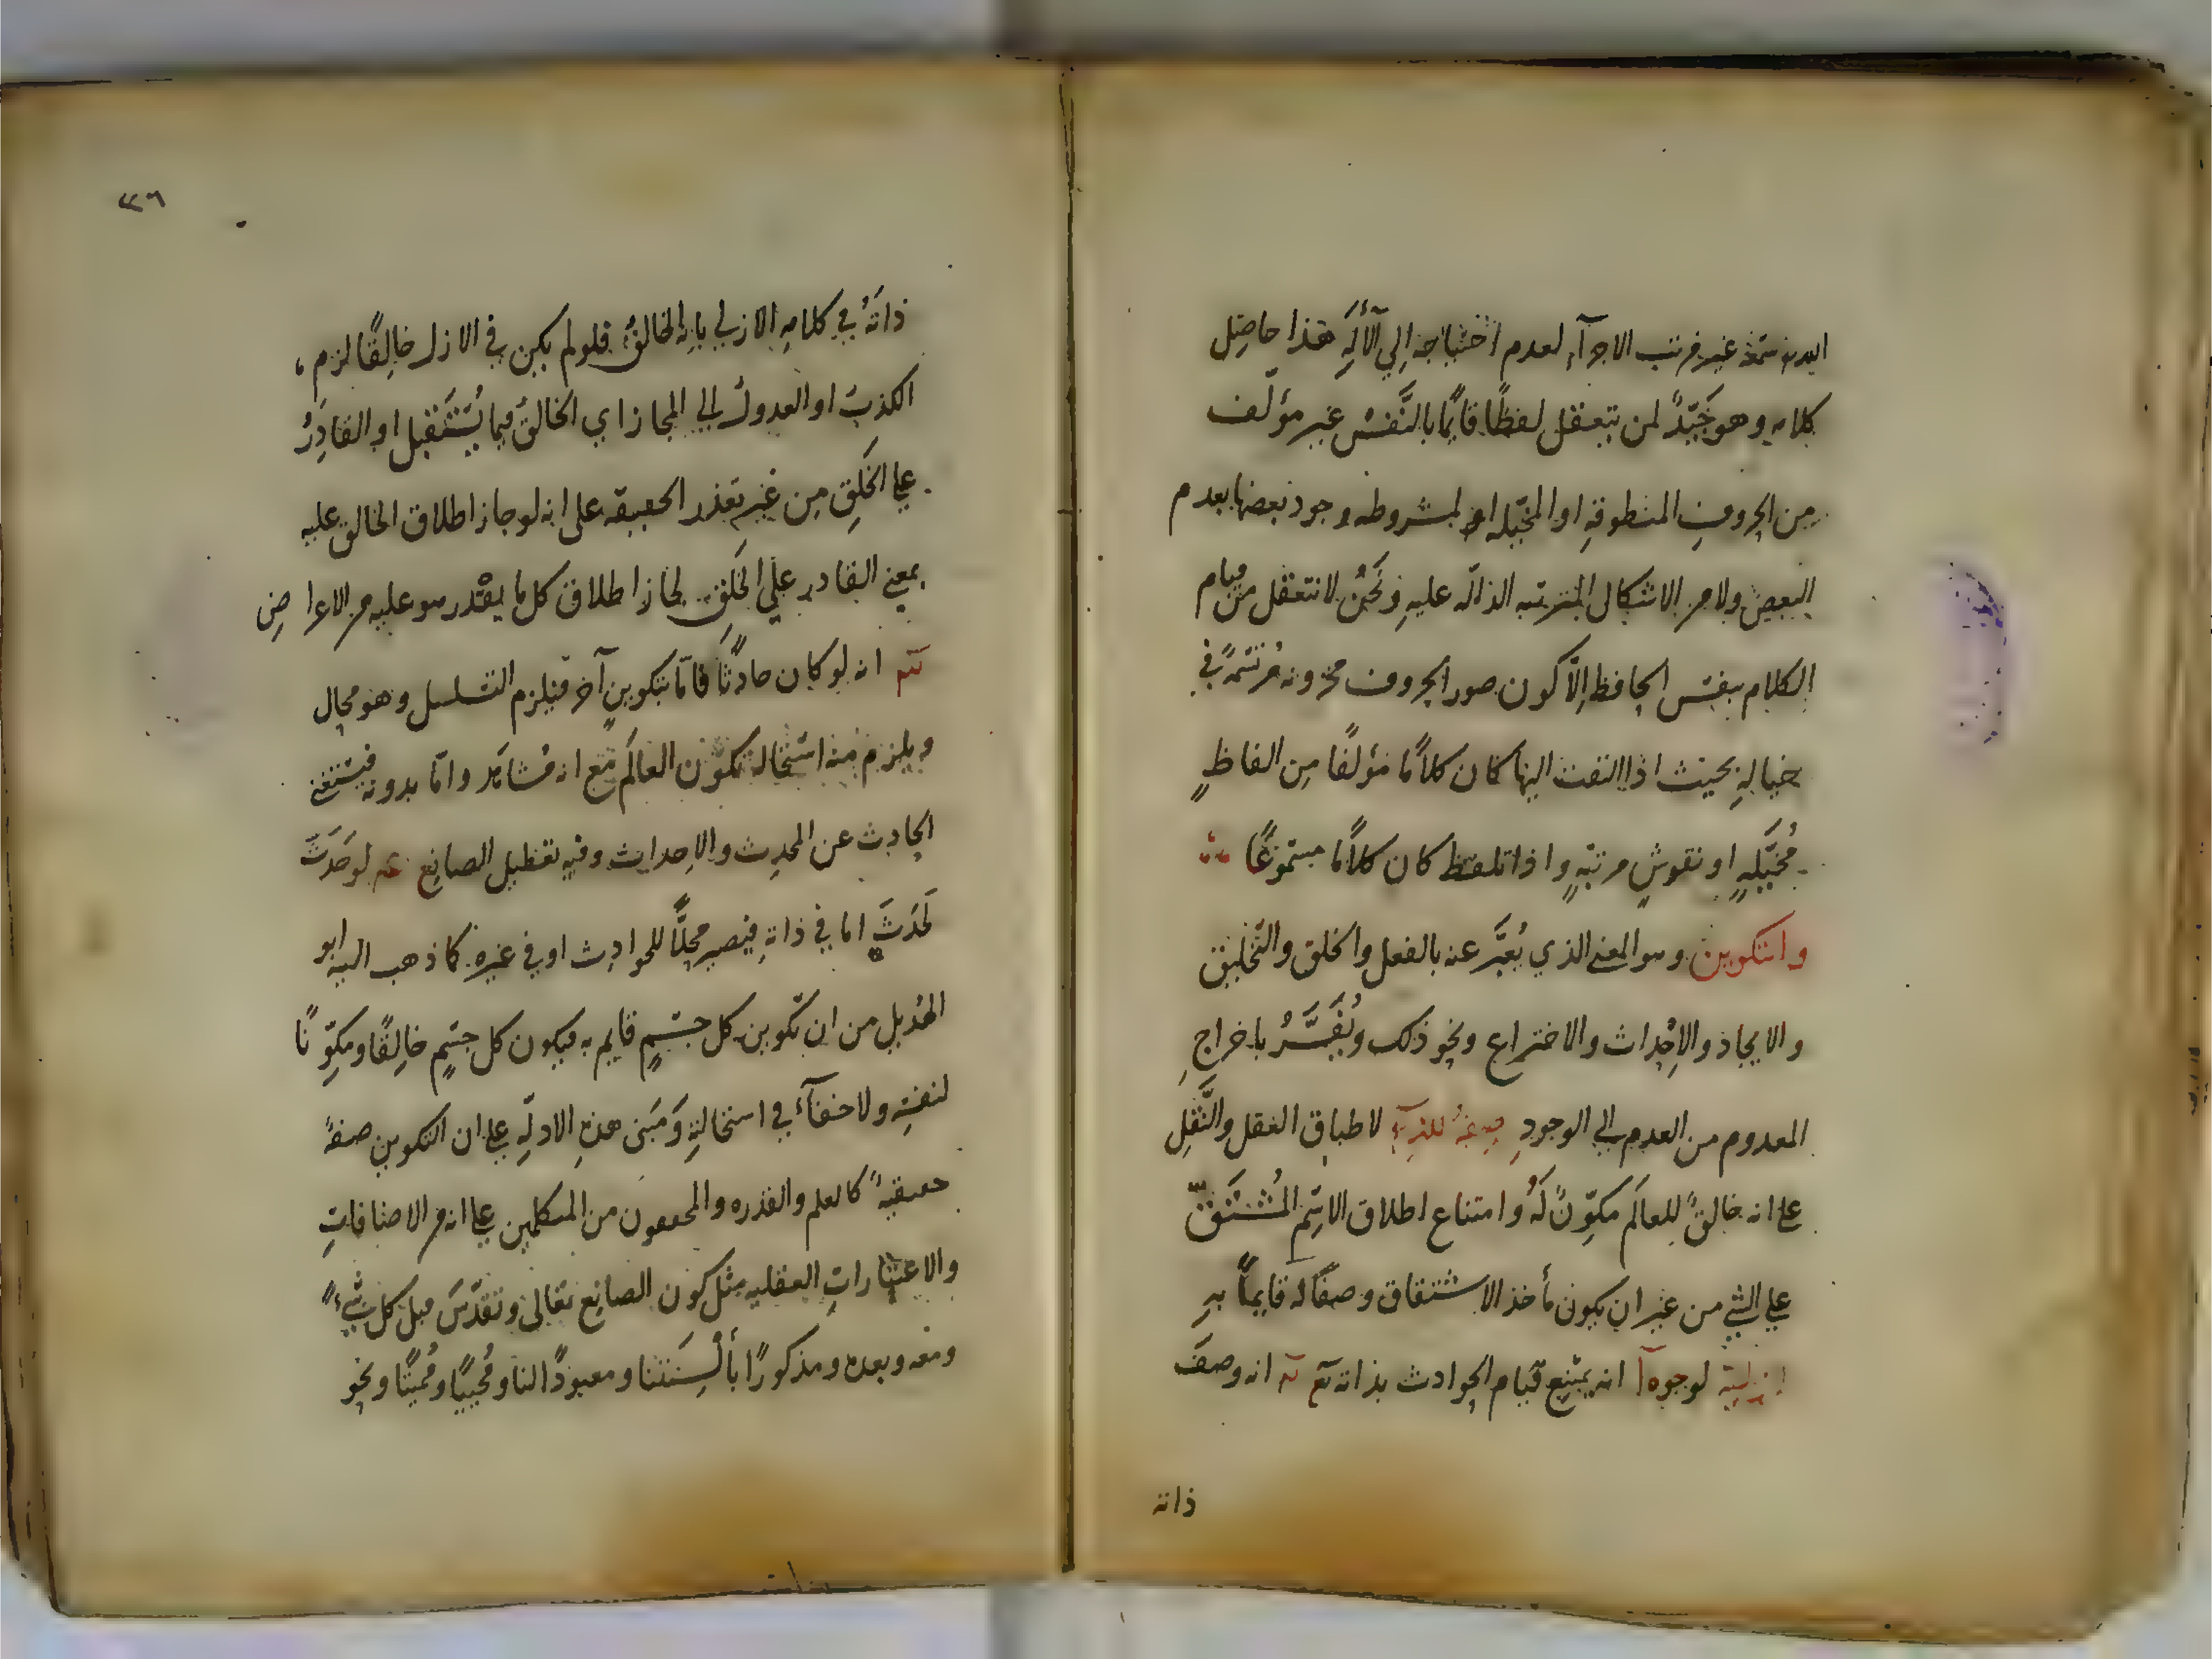 الله سمعه غير مرتب الاجزآء لعدم احتياجه إلي الآلَةِ هذا حاصِل
كلامه وهو جَيِّدٌ لمن يتعقل لفظًا قايمًا بالنَّفسْ غير مؤلّف
من الحروفِ المنطوقةِ او المخيّلة المشروطه وجود بعضها بعدم
البعض ولا من الاشكال المترتبه الدالّه عليهِ ونَحْنُ لا نتعقل من قيام
الكلام بنفس الحافظ إلّا كون صور الحروف مخزونه مُرتَسَمةً في
خيالهِ بحيث اذا التفت اليها كان كلامًا مؤلفًا مِن الفاظٍ
مُخيَّلَهٍ او نقوشٍ مرتبّهٍ واذا تلفظ كان كلامًا مسموعًا
والتكوين وهو المعنى الذي يُعبَّر عنه بالفعل والخلق والتخليق
والايجاد والإِحْداث والاختراع ونحو ذلك ويُفَسَّرُ باخراجِ
المعدوم من العدم إلي الوجودِ صفةٌ للهِ لاطباق العقل والنَّقلِ
على انه خالقٌ للعالَم مكوِّنٌ لَهُ وامتناع اطلاق الاسْم المُشْتَقّ
علي الشي من غير ان يكون مأخذ الاشتقاق وصفًا له قايمًا بهِ
ازلية لوجوه آ انه يمتنع قيام الحوادث بذاته تع انه وصفَ
ذاته
٣٦
ذاتَهُ في كلامهِ الازلي بانه الخالقُ فلو لم يكن في الازل خالِقًا لزم
الكذبُ او العدولُ الي المجاز اي الخالقُ فيما يُسْتَقْبل او القادِرُ
علي الخَلقِ مِن غيرِ تعذر الحقيقه على انه لو جاز اطلاق الخالق عليه
بمعني القادر علي الخَلقِ لجاز اطلاق كل ما يقْدر هو عليه من الاعراضِ
انه لو كان حادثًا فامّا بتكوينٍ آخر فيلزم التسلسل وهو محال
ويلزم منه استحالة تكوّن العالَم مَع انه مُشاهَد وامّا بدونه فيستغني
الحادث عن المحدِث والاِحداث وفيهِ تعطيل الصانِع لو حَدَثَ
لَحَدَثَ اما في ذاتهِ فيصير محلًّا للحوادِث او في غيره كما ذهب اليه ابو
الهُذيل من ان تكوين كل جسْمٍ قايم به فيكون كل جسْمٍ خالِقًا ومكوِّنًا
لنفسِه ولا خفآءَ في استحالتهِ وَمَبْنى هذهِ الادلّهِ علي ان التكوين صفةٌ
حقيقيةٌ كالعلم والقدره والمحققون من المتكلمين علي انه من الاضافاتِ
والاعتباراتِ العقليه مثل كون الصانِع تعالى وتقدّسَ قبل كل شيءٍ
ومعه وبعده ومذكورًا بأَلْسِنَتنا ومعبودًا لنا ومُحْييًا ومُميتًا ونحو